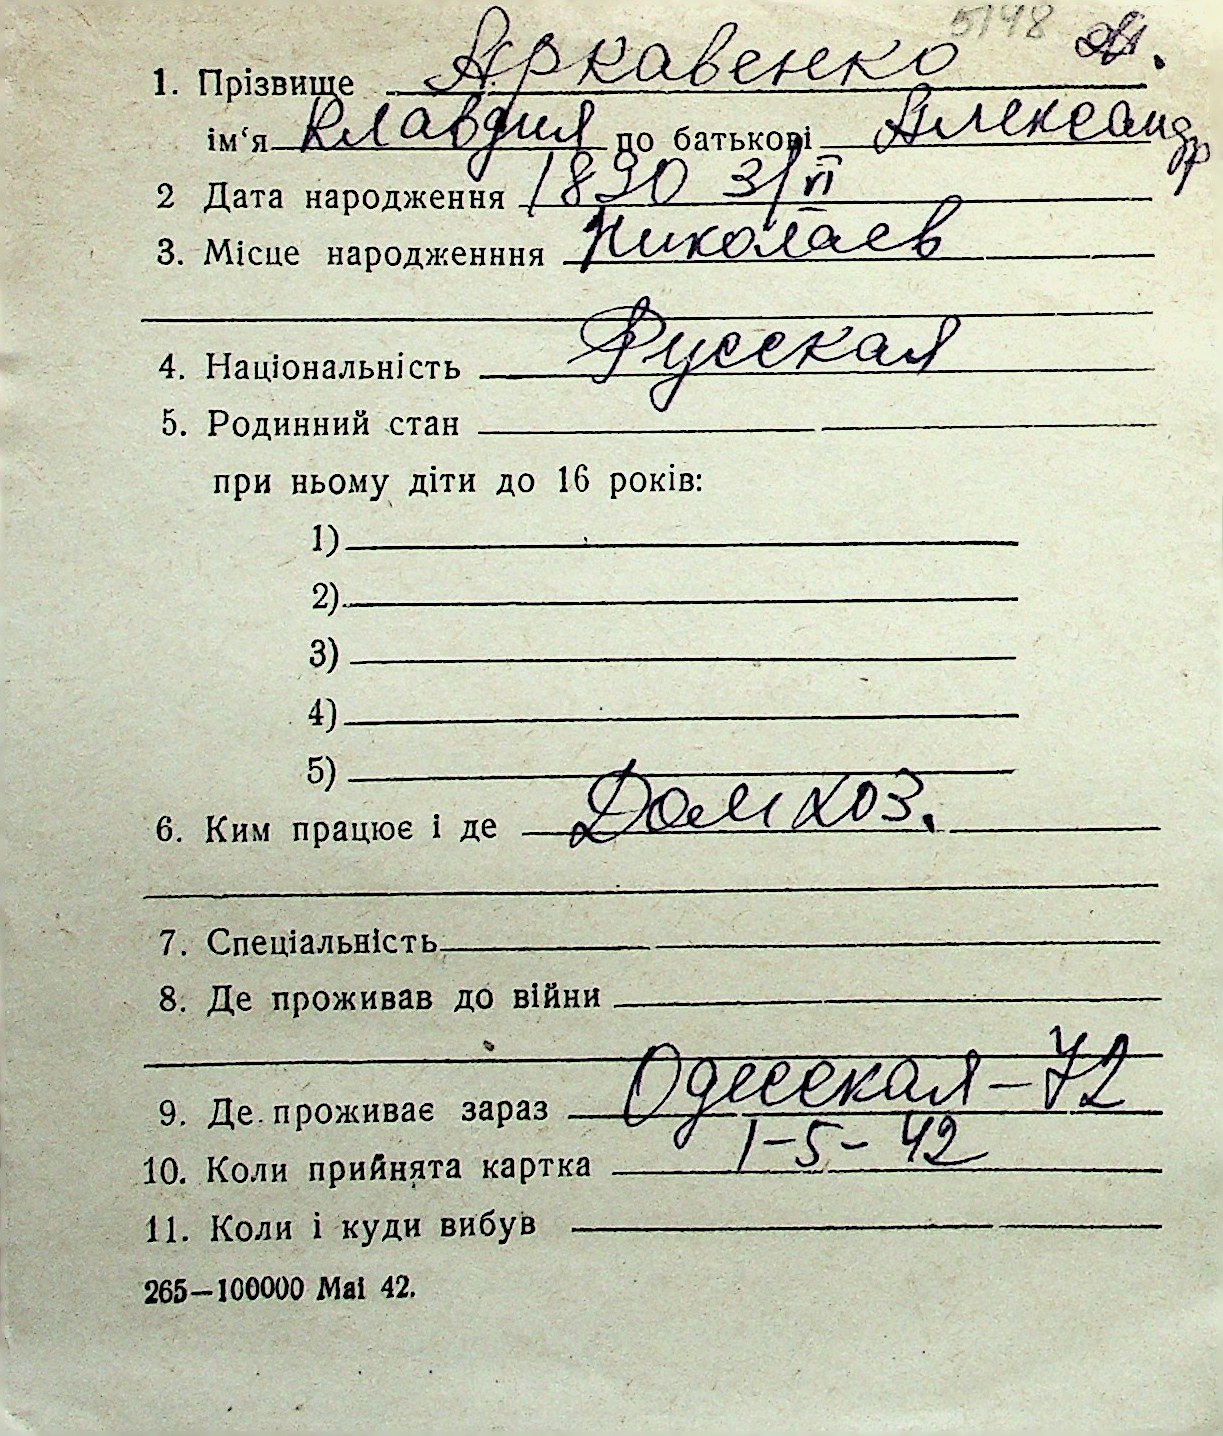 5148
1. Прізвище Яркавенко
ім‘я Клавдия по батькові Александр
2 Дата народження 1890 3/VI
3. Місце народженння Николаев
4. Національність Русская
5. Родинний стан
при ньому діти до 16 років:
1)
2)
3)
4)
5)
6. Ким працює і де Домхоз.
7. Спеціальність
8. Де проживав до війни
9. Де проживає зараз Одесская-72
10. Коли прийнята картка 1-5-42
11. Коли і куди вибув
265—100000 Mai 42.